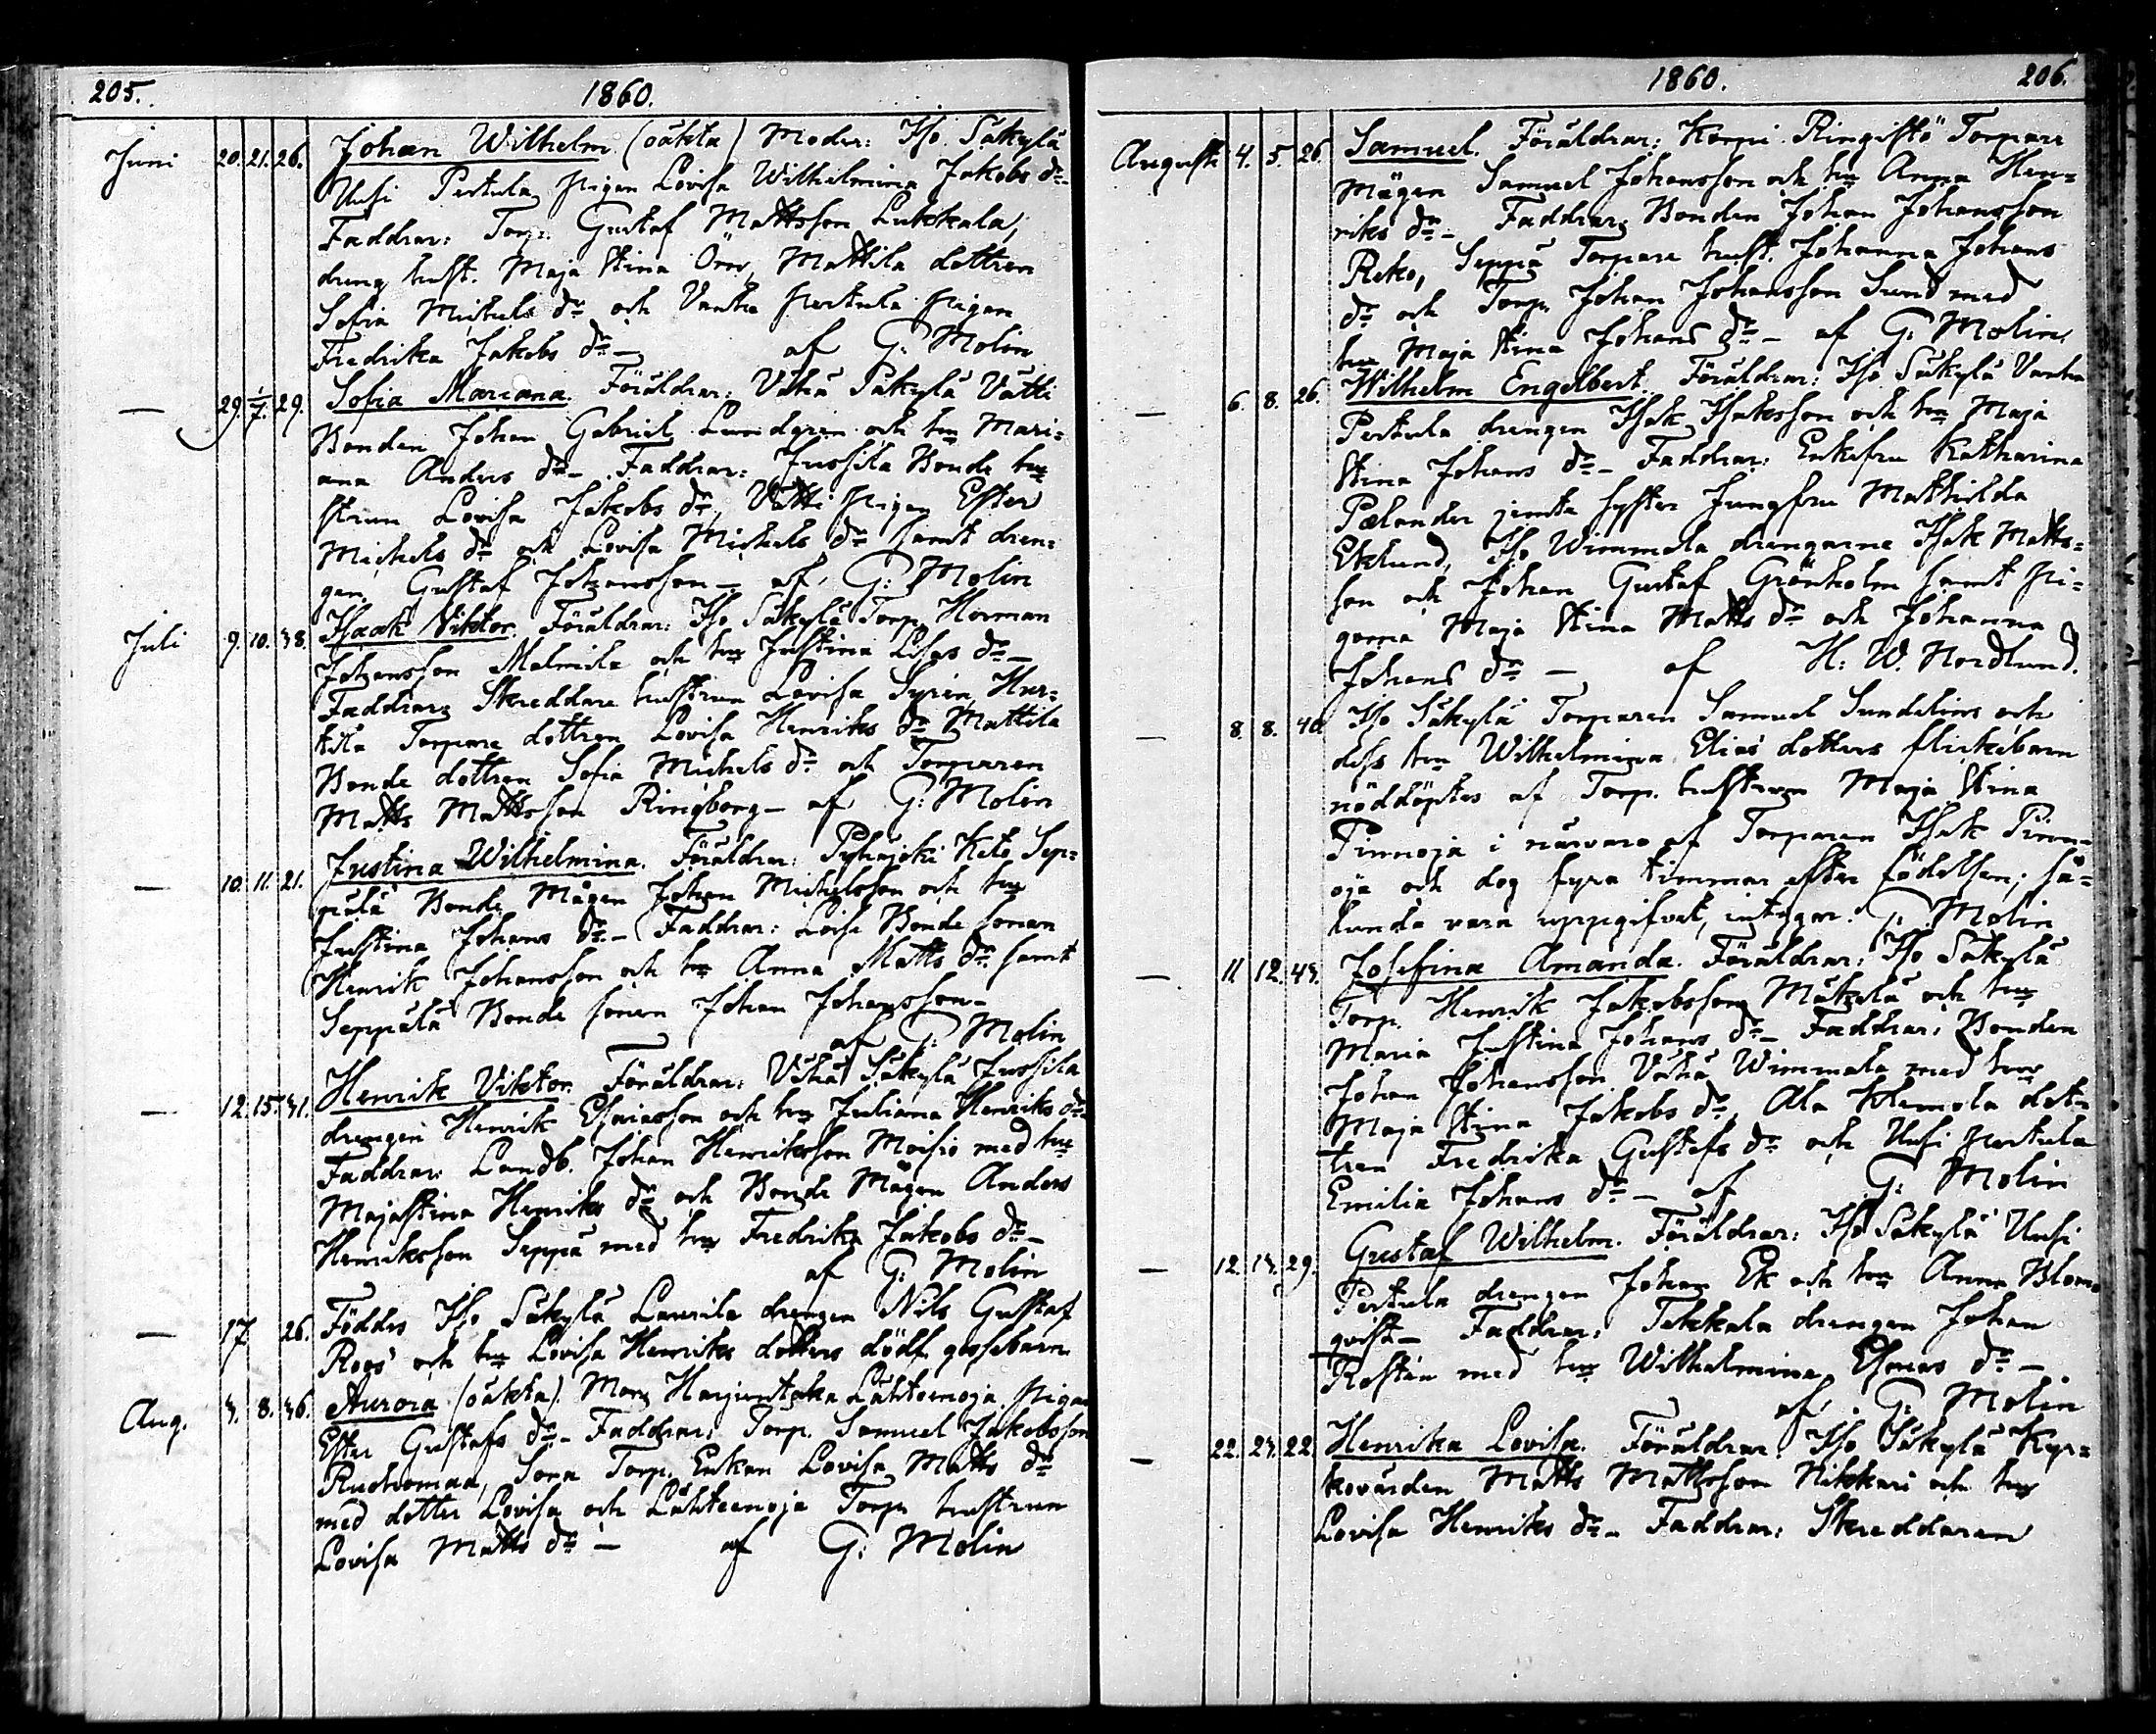 205. 1860.
Juni 20. 21. 26. Johan Wilhelm (oäkta) Moder: Iso Säkylä
Uusi Pertula pigan Lovisa Wilhelmina Jakobs dr.
Faddrar: Torp. Gustaf Mattsson Lukkala,
dreng hust. Maja Stina Örn, Mattila dottren
Sofia Michels dr och Vanha Pertula pigan
Fredrika Jakobs dr – af G: Molin
— 29. 1/7. 29. Sofia Mariana. Föräldrar: Vähä Säkylä Vätti
Bonden Johan Gabriel Lundgren och hu Mari=
ana Anders dr – Faddrar: Jussila Bonde hu
strun Lovisa Jakobs dr, Vätti pigan Ester
Michels dr och Lovisa Michels dr samt dren=
gen Gustaf Johansson – af G: Molin
Juli 9. 10. 48. Isaak Viktor. Föräldrar: Iso Säkylä Torp. Herman
Johansson Malmila och hu Justina Esas dr –
Faddrar: Skreddare hustrun Lovisa Syrén, Hur=
tila Torpare dottren Lovisa Henriks dr Mattila
Bonde dottren Sofia Michels dr och Torparen
Matts Mattsson Ringborg – af G: Molin
— 10. 11. 21. Justina Wilhelmina. Föräldrar: Pyhäjoki Keto Sep=
pälä Bonde Mågen Johan Michelsson och hu
Justina Johans dr. – Faddrar: Bonde sonen
Henrik Johansson och hu Anna Matts dr. samt
Seppälä Bonde sonen Johan Johansson –
af G: Molin
— 12. 15. 41. Henrik Viktor. Föräldrar: Vähä Säkylä Jussila
drengen Henrik Esaiasson och hu Juliana Henriks dr
Faddrar: Landb. Johan Henriksson Moisio med hu
Majastina Henriks dr och Bonde Mågen Anders
Henriksson Seppä med hu Fredrika Jakobs dr –
af G: Molin
— 17. 26. Föddes Iso Säkylä Laurila drengen Nils Gustaf
Roos och hu Lovisa Henriks dotters dödf. gossebarn
Aug. 4. 8. 46. Aurora (oäkta). Mor: Harjuntaka Lähteenoja pigan
Ester Gustafs dr – Faddrar: Torp. Samuel Jakobsson
Ruohomaa, Torp. Enkan Lovisa Matts dr
med dotter Lovisa och Lähteenoja Torp. hustrun
Lovisa Matts dr – af G: Molin
1860. 206.
Augusti 4. 5. 26. Samuel. Föräldrar: Korpi Ringistö Torpare
Mågen Samuel Johansson och hu Anna Hen=
riks dr – Faddrar: Bonden Johan Johansson
Reko, Seppä Torpare hust. Johanna Johans
dr och Torp. Johan Johansson Sund med
hu Maja Stina Johans dr – af G: Molin
— 6. 8. 26. Wilhelm Engelbert. Föräldrar: Iso Säkylä Vanha
Pertula drengen Isak Isaksson och hu Maja
Stina Johans dr – Faddrar: Enkefru Katharina
Pælander jemte syster Jungfru Mathilda
Eklund, Iso Wimmala drengarne Isak Matts=
son och Johan Gustaf Grönholm samt pi=
gorna Maja Stina Matts dr och Johanna
Johans dr – af H: W. Nordlund.
— 8. 8. 40. Iso Säkylä Torparen Samuel Sundelins och
dess hu Wilhelmina Elias dotters flickebarn
nöddöptes af Torp. hustrun Maja Stina
Pinnoja i närvaro af Torparen Isak Pinn-
oja och dog fyra timmar efter födelsen; så=
lunda vara uppgifvet, intygar: G: Molin
— 11. 12. 44. Josefina Amanda. Föräldrar: Iso Säkylä
Torp. Henrik Jakobsson Mäkelä och hu
Maria Justina Johans dr – Faddrar: Bonden
Johan Johansson Vähä Wimmala med hu
Maja Stina Jakobs dr, Ala Klemola dot=
tren Fredrika Gustafs dr och Uusi Pertula
Emilia Johans dr – af G: Molin
— 12. 14. 29. Gustaf Wilhelm. Föräldrar: Iso Säkylä Uusi
Pertula drengen Johan Ek och hu Anna Blom=
qvist – Faddrar: Tekkala drengen Johan
Rostén med hu Wilhelmina Esaias dr –
af G: Molin
— 22. 24. 22. Henrika Lovisa. Föräldrar: Iso Säkylä Kyr=
kovärden Matts Mattsson Nikkari och hu
Lovisa Henriks dr – Faddrar: Skreddaren